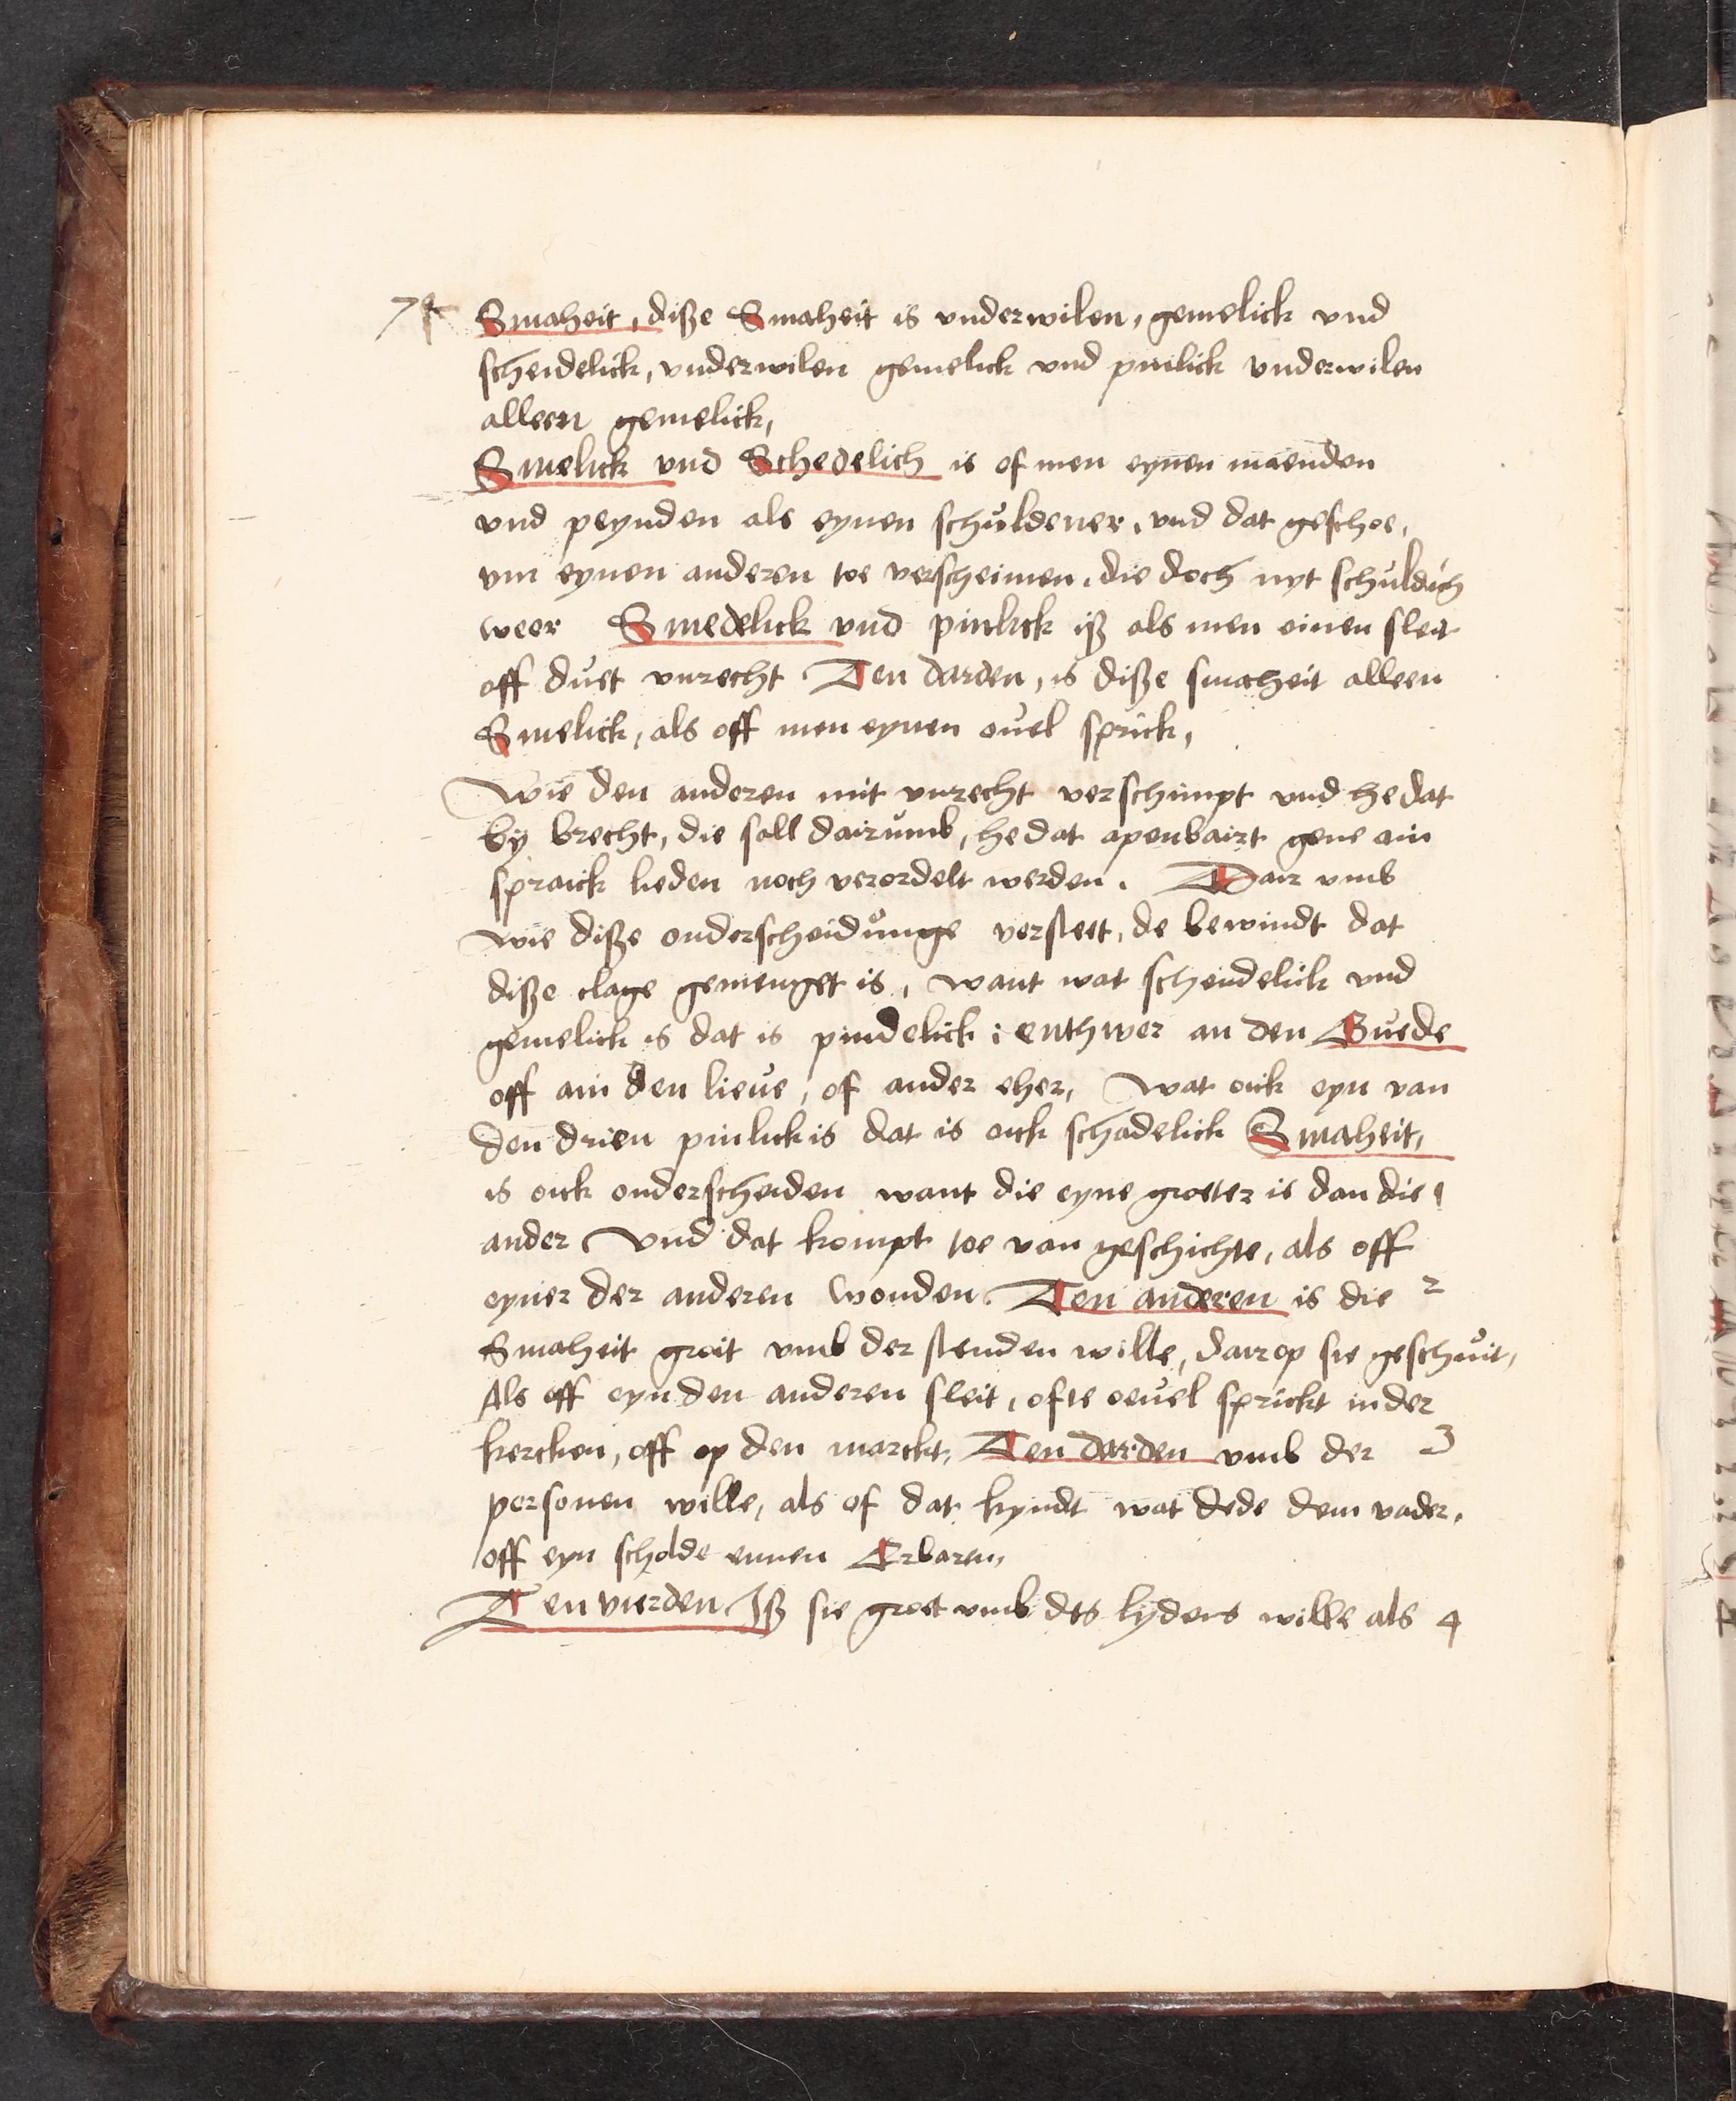 Smaheit, diße Smaheit is vnderwilen, gemelick vnd
scheidelick, vnderwilen gemelick vnd pinlick vnderwilen
alleen gemelick,
Smelick vnd Schedelich is of men eynen maenden
vnd peynden als eynen schuldener, vnd dat geschee,
vm eynen anderen toe verscheimen, die doch nyt schuldich
weer Smedelick vnd pinlick iß als men einen sleit
off duet vnrecht Ten darden, is diße smaheit alleen
Smelick, als off men eynen ouel sprick,
Wie den anderen mit vnrecht verschimpt vnd he dat
by brecht, die sall dairumb, he dat apenbairt gene ain
spraick lieden noch verordelt werden. Dair vmb
wie diße onderscheidunge versteet, de bewindt dat
diße clage gemenget is, want wat scheidelick vnd
gemelick is dat is pindelick: enthwer an den Guede
off ain den lieue, of ander eher, Wat oick eyn van
den drien pinlick is dat is oick schadelick Smaheit,
is oick onderscheiden want die eyne groeter is dan die 1
ander Vnd dat kompt toe van geschichte, als off
eyner der anderen wonden. Ten anderen is die 2
Smaheit groit vmb der stenden wille, dairop sie geschuit,
Als off eyn den anderen sleit, ofte oeuel sprickt in der
kercken, off op den marckt, Ten darden vmb der 3
personen wille, als of dat kyndt wat dede dem vader,
off eyn scholde ennen Erbaren,
Ten vierden Iß sie groet vmb des lyders wille als 4